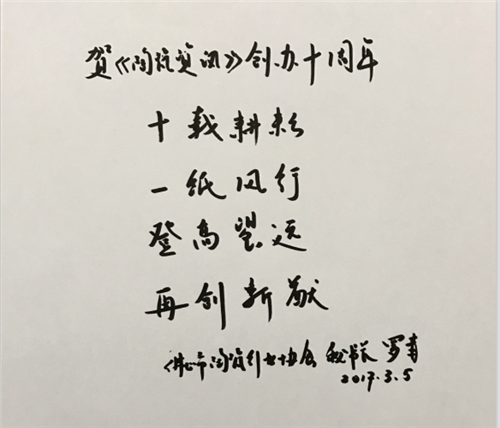 贺《陶瓷资讯》创办十周年
十载耕耘
一纸风行
登高望远
再创新猷
佛山市陶瓷行业协会 秘书长 罗青
2017.3.5